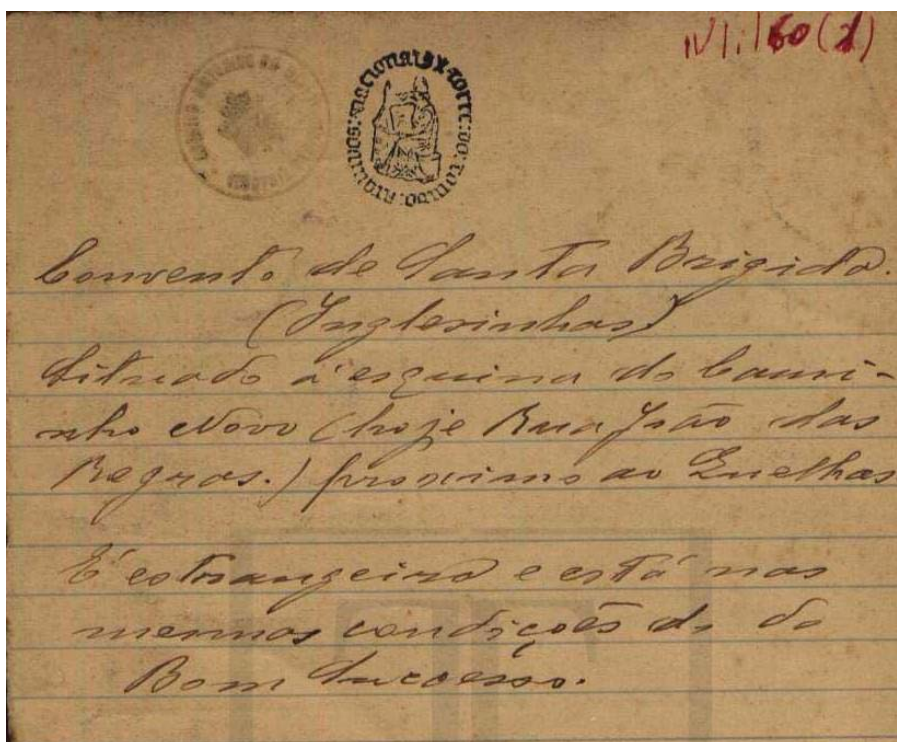 IV/i/60(1)
ARQUIVOS:NACIONAIS X TORRE:DO:TOMBO
Convento de Santa Brigida.
(Inglesinhas)
Situado á esquina do Cami-
nho Novo (hoje Rua João das
Regras.) proximo ao Quelhas
É estrangeiro e está nas
mesmas condições do do
Bom Successo.